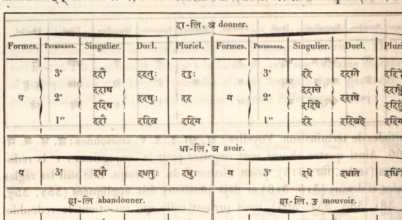 दा-लि, ञ donner.
Formes. Personnes. Singulier. Duel. Pluriel. Formes. Personnes. Singulier. Duel.
3ᵉ ददौ ददतुः ददुः 3ᵉ ददे ददाते
ददाथ
प 2ᵉ ददथुः दद म 2ᵉ ददाथे
ददिथ ददिषे
1ʳᵉ ददौ ददिव ददिम 1ʳᵉ ददे ददिवहे
धा-लि, ञ avoir.
प 3ᵉ दधौ दधतुः दधुः म 3ᵉ दधे दधाते
हा-लि abandonner. हा-लि, ङ mouvoir.